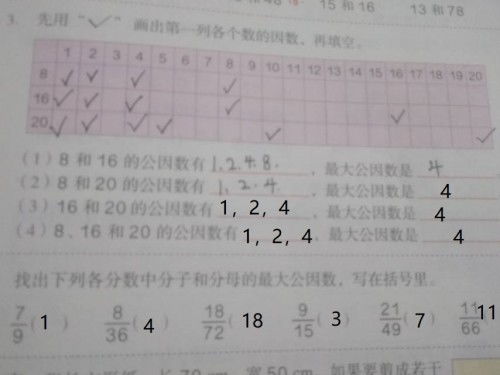 15和16 13和78
3. 先用“✓”画出第一列各个数的因数，再填空。
1 2 3 4 5 6 7 8 9 10 11 12 13 14 15 16 17 18 19 20
8 ✓ ✓ ✓ ✓
16 ✓ ✓ ✓ ✓ ✓
20 ✓ ✓ ✓ ✓ ✓ ✓
(1) 8和16的公因数有 1,2,4,8. ，最大公因数是 4
(2) 8和20的公因数有 1,2.4 ，最大公因数是 4
(3) 16和20的公因数有 1，2，4 ，最大公因数是 4
(4) 8、16和20的公因数有 1，2，4，最大公因数是 4
找出下列各分数中分子和分母的最大公因数，写在括号里。
7/9 (1) 8/36 (4) 18/72 (18 9/15 (3) 21/49 (7) 11/66 11
长70cm，宽50cm，如果要剪成若干